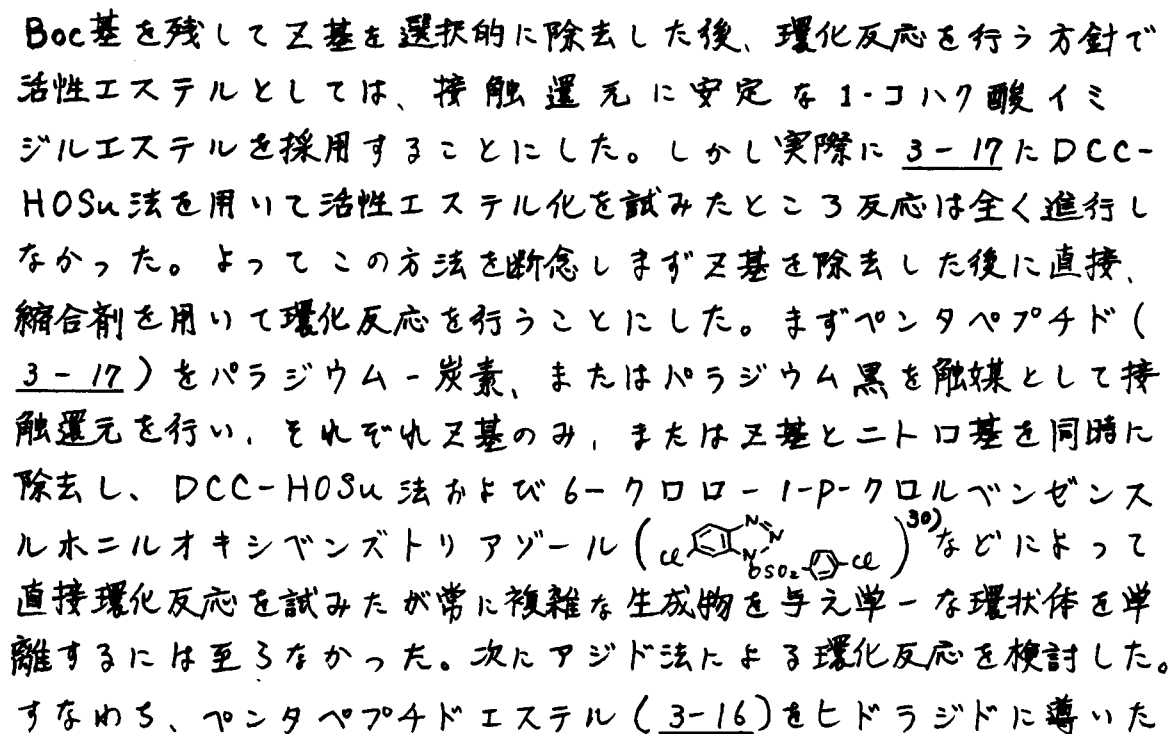 Boc基を残してZ基を選択的に除去した後、環化反応を行う方針で
活性エステルとしては、接触還元に安定な1-コハク酸イミ
ジルエステルを採用することにした。しかし実際に3-17にDCC-
HOSu法を用いて活性エステル化を試みたところ反応は全く進行し
なかった。よってこの方法を断念しまずZ基を除去した後に直接、
縮合剤を用いて環化反応を行うことにした。まずペンタペプチド(
3-17)をパラジウム-炭素、またはパラジウム黒を触媒として接
触還元を行い、それぞれZ基のみ、またはZ基とニトロ基を同時に
除去し、DCC-HOSu法および6-クロロ-1-p-クロルベンゼンス
ルホニルオキシベンズトリアゾール(Cl N=N N OSO₂ Cl)30)などによって
直接環化反応を試みたが常に複雑な生成物を与え単一な環状体を単
離するには至らなかった。次にアジド法による環化反応を検討した。
すなわち、ペンタペプチドエステル(3-16)をヒドラジドに導いた